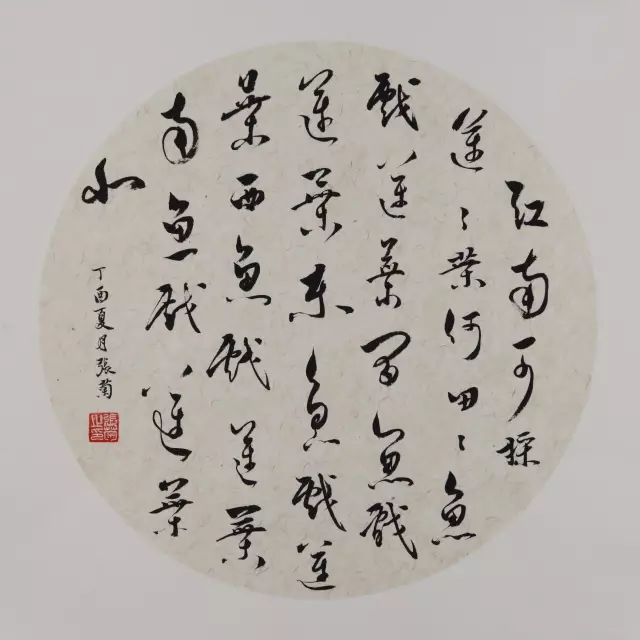 江南可採
蓮々葉何田々魚
戲蓮葉間魚戲
蓮葉東魚戲蓮
葉西魚戲蓮葉
南魚戲蓮葉
北
丁酉夏月張菊